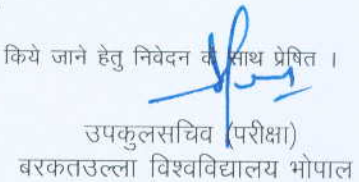 किये जाने हेतु निवेदन के साथ प्रेषित ।
उपकुलसचिव (परीक्षा)
बरकतउल्ला विश्वविद्यालय भोपाल